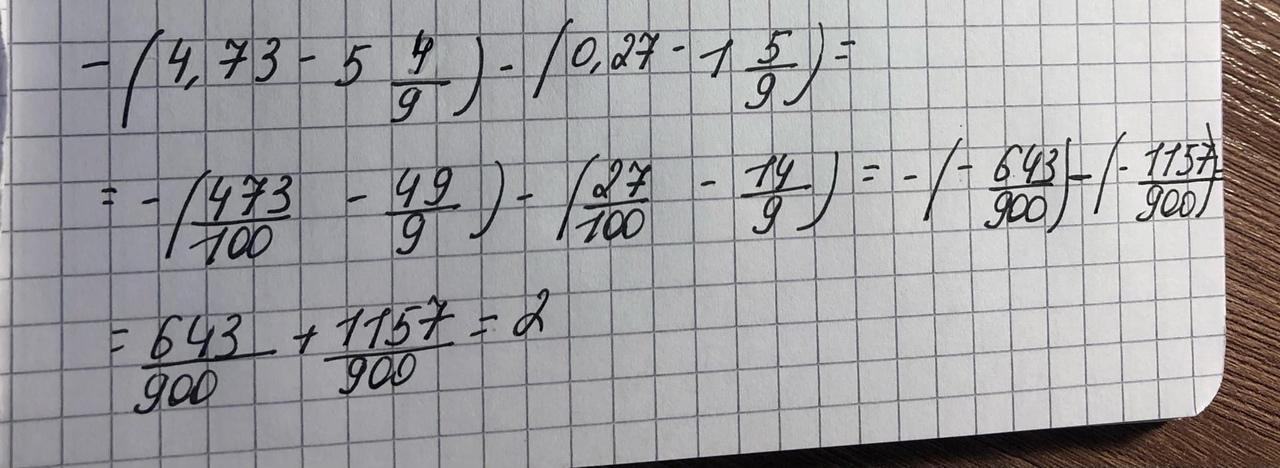 -(4,73 - 5 4/9) - (0,27 - 1 5/9) =
= -(473/100 - 49/9) - (27/100 - 14/9) = -(-643/900) - (-1157/900) =
= 643/900 + 1157/900 = 2